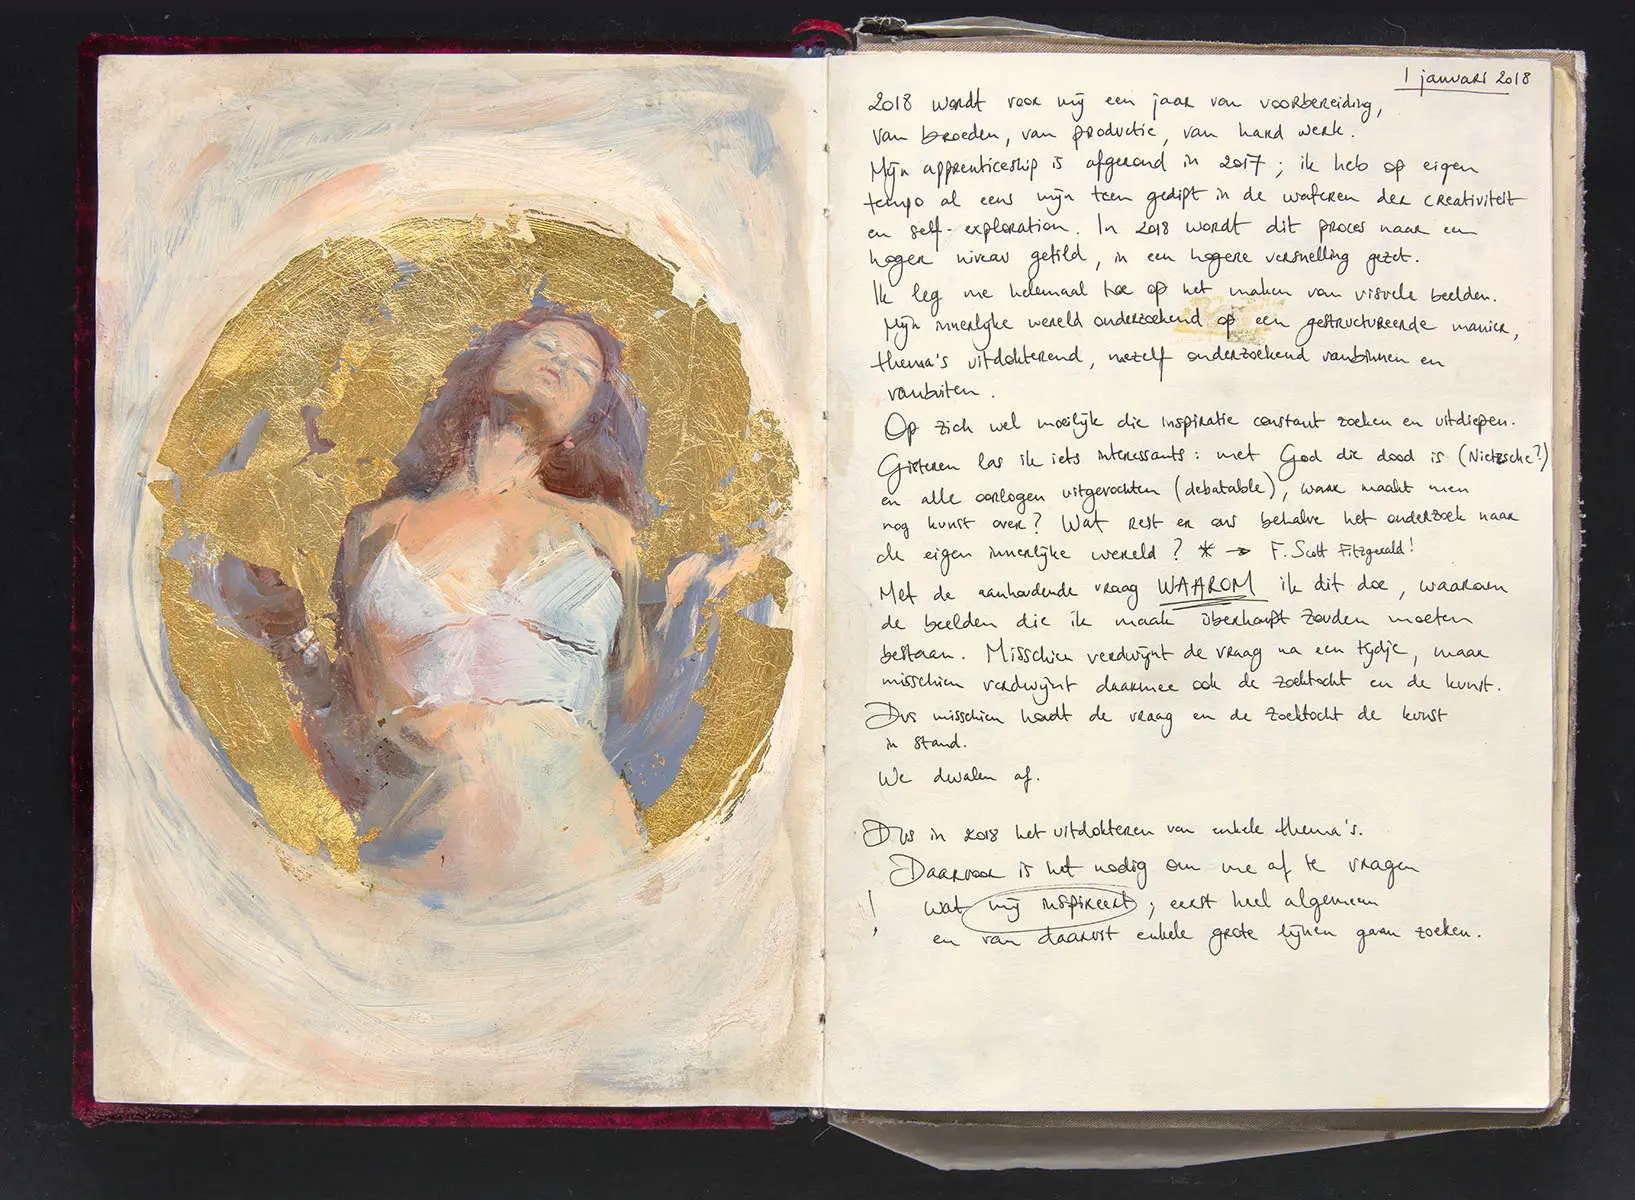 1 januari 2018
2018 wordt voor mij een jaar van voorbereiding,
van broeden, van productie, van hard werk.
Mijn apprenticeship is afgerond in 2017; ik heb op eigen
tempo al eens mijn teen gedipt in de wateren der creativiteit
en self-exploration. In 2018 wordt dit proces naar een
hoger niveau getild, in een hogere versnelling gezet.
Ik leg me helemaal toe op het maken van visuele beelden.
Mijn innerlijke wereld onderzoekend op een gestructureerde manier,
thema's uitdokterend, mezelf onderzoekend vanbinnen en
vanbuiten.
Op zich wel moeilijk die inspiratie constant zoeken en uitdiepen.
Gisteren las ik iets interessants: met God die dood is (Nietzsche?)
en alle oorlogen uitgevochten (debatable), waar maakt men
nog kunst over? Wat rest er ons behalve het onderzoek naar
de eigen innerlijke wereld? * → F. Scott Fitzgerald!
Met de aanhoudende vraag WAAROM ik dit doe, waarom
de beelden die ik maak überhaupt zouden moeten
bestaan. Misschien verdwijnt de vraag na een tijdje, maar
misschien verdwijnt daarmee ook de zoektocht en de kunst.
Dus misschien houdt de vraag en de zoektocht de kunst
in stand.
We dwalen af.
Dus in 2018 het uitdokteren van enkele thema's.
Daarvoor is het nodig om me af te vragen
! wat mij inspireert; eerst heel algemeen
en van daaruit enkele grote lijnen gaan zoeken.